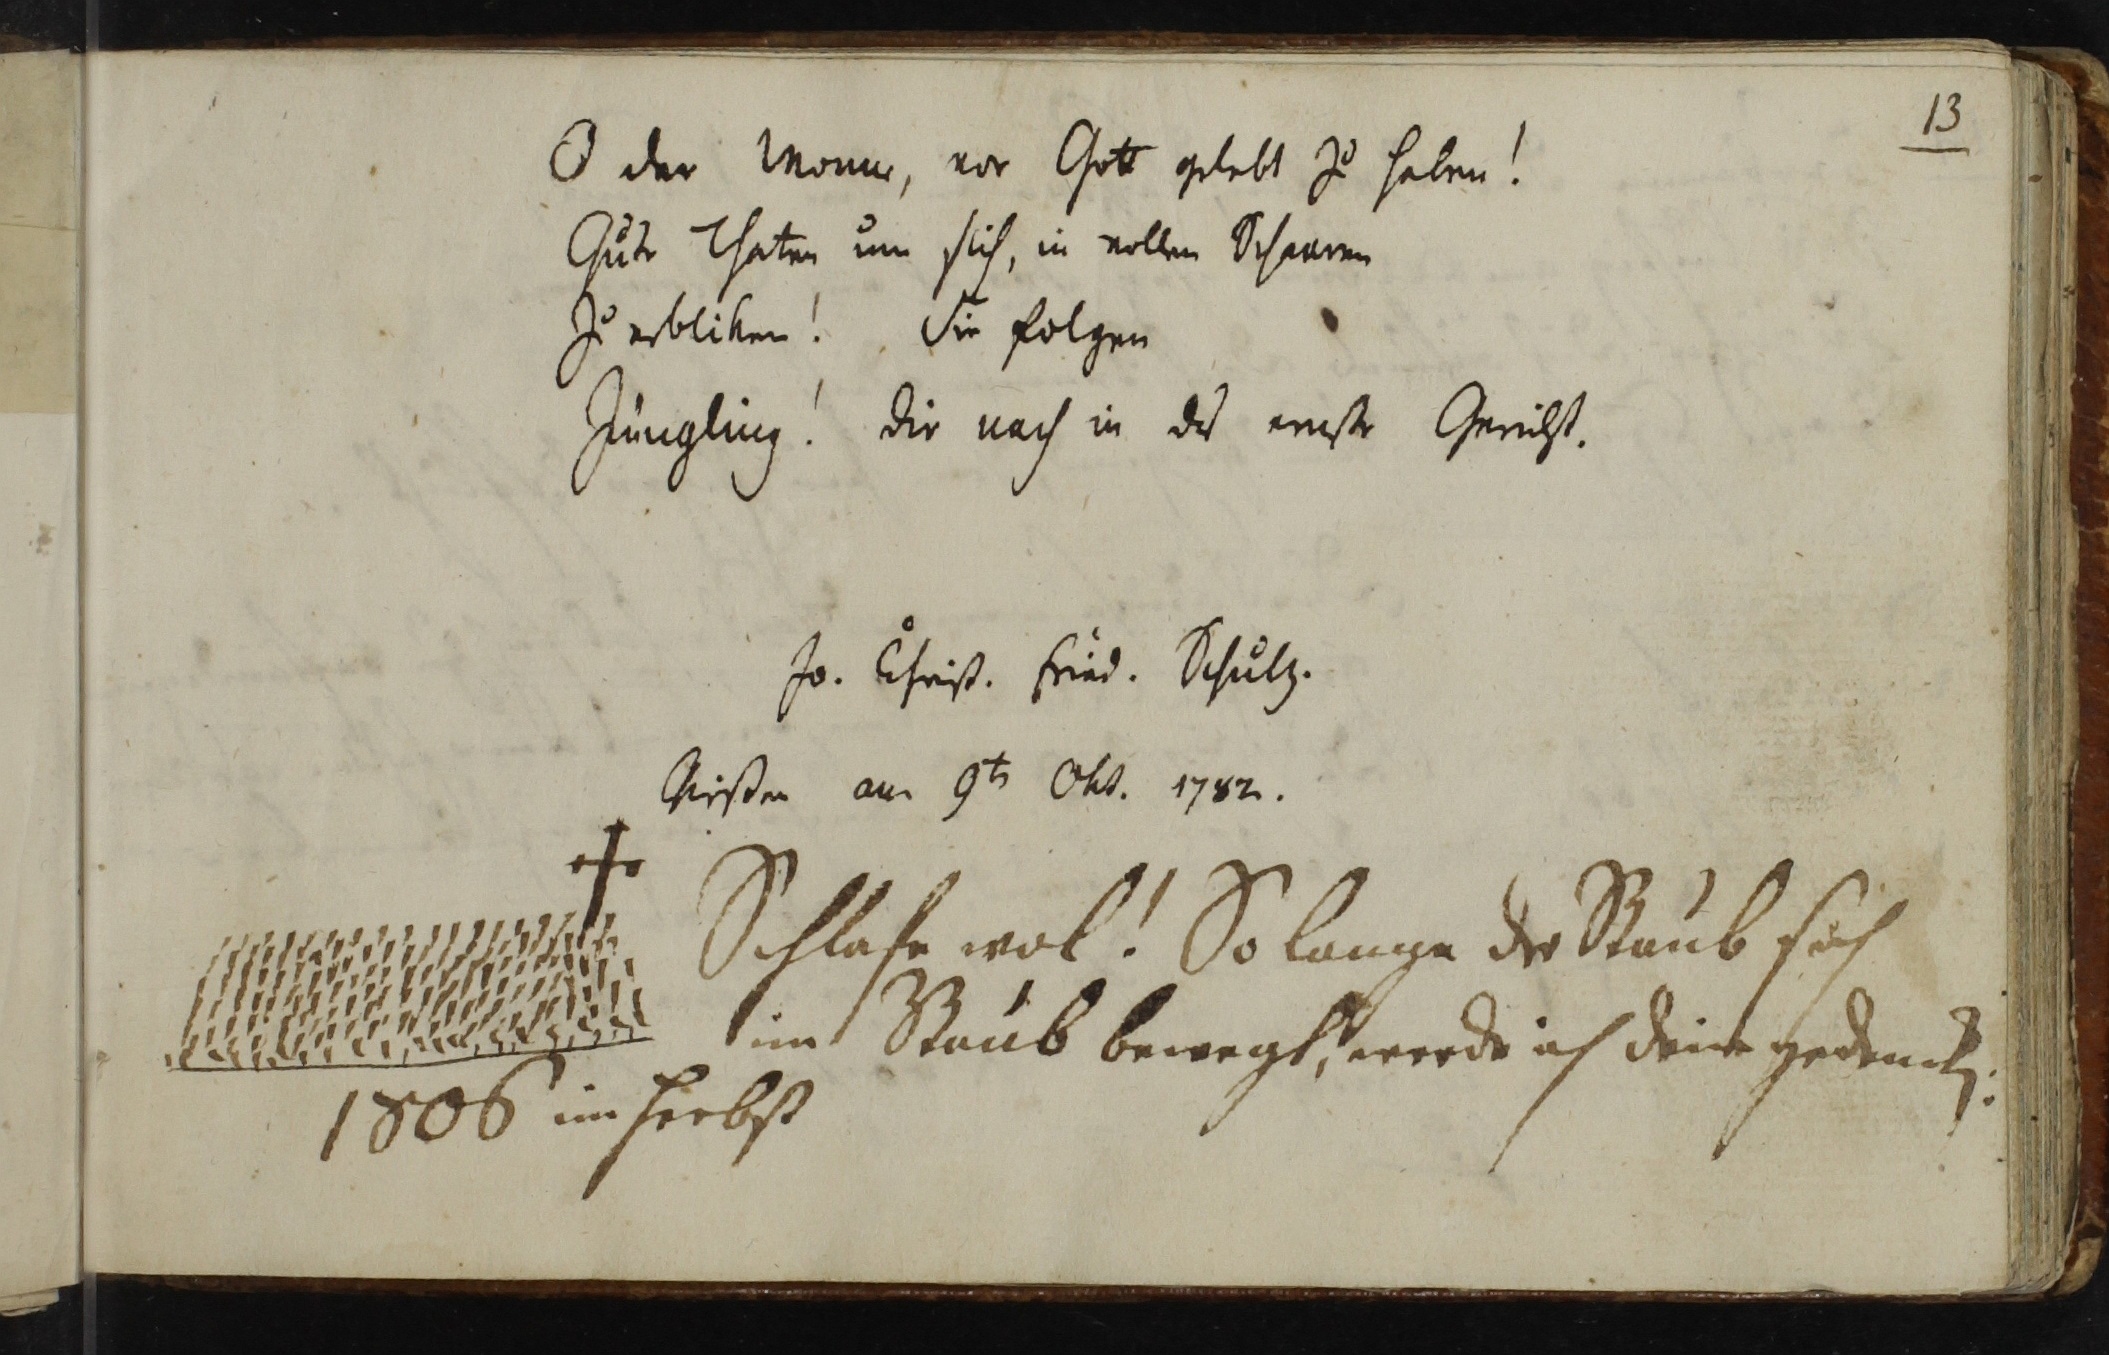 13
O der Wonne, vor Gott gelebt zu haben!
Gute Thaten um sich, in vollen Schaaren
Zu erbliken! Sie folgen
Jüngling! dir nach in das ernste Gericht.
Jo. Christ. Fried. Schulz.
Giessen am 9t Okt. 1782.
Schlafe wol! So lange der Staub sich
im Staub bewegt, werde ich dein gedenck.
1806 im Herbst